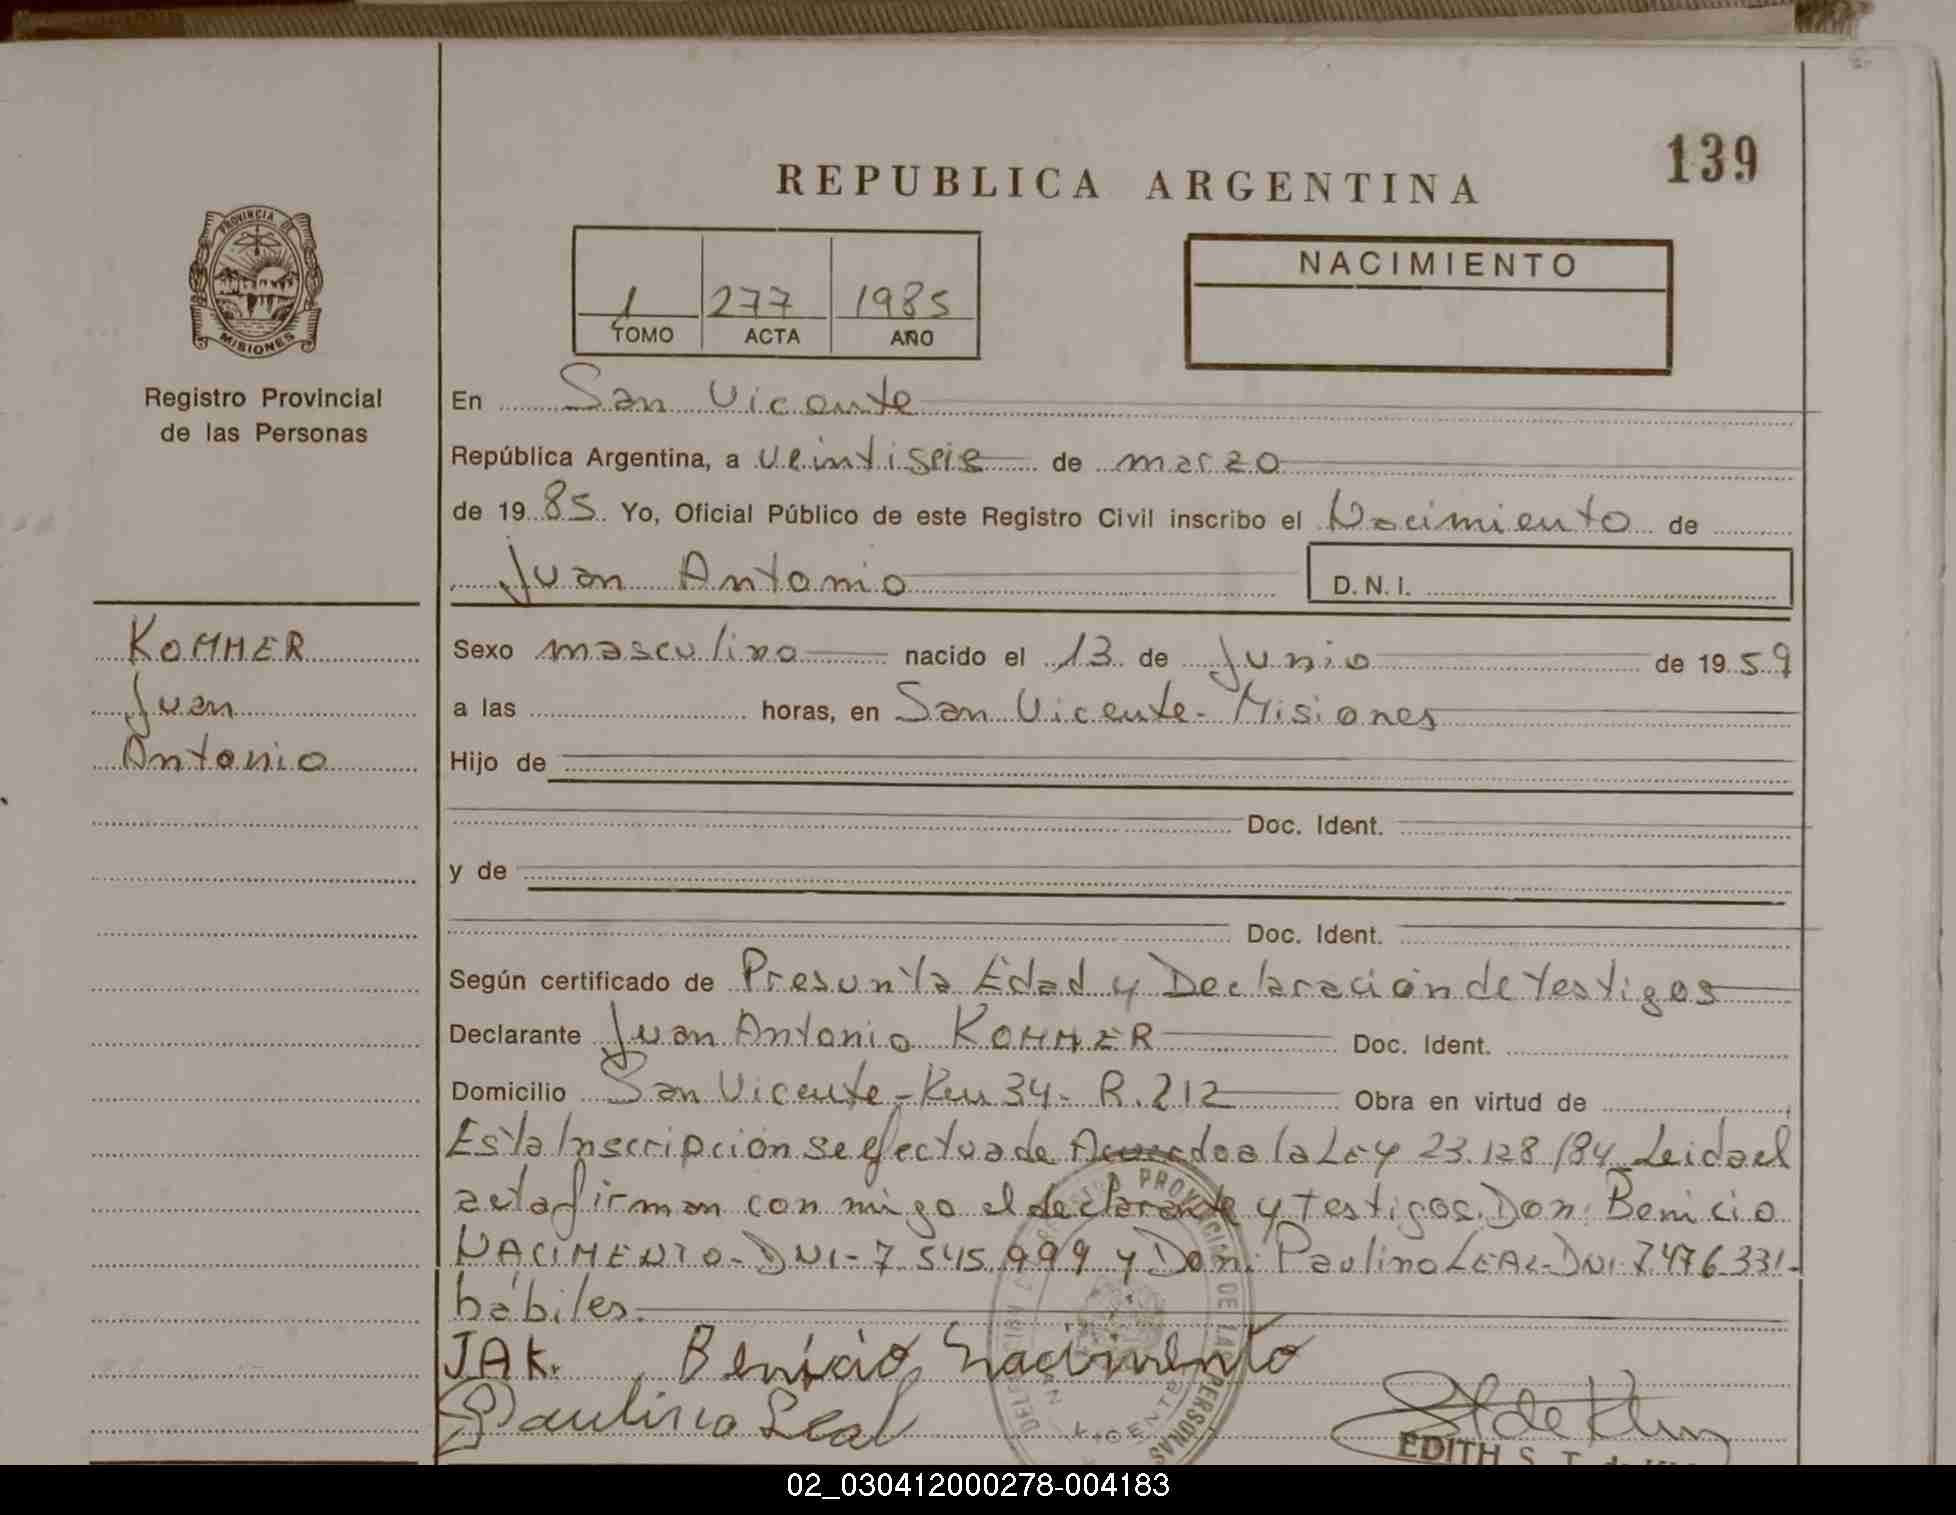 139
REPUBLICA ARGENTINA
PROVINCIA DE
MISIONES
1 277 1985
TOMO ACTA AÑO
NACIMIENTO
Registro Provincial
de las Personas
En San Vicente
República Argentina, a veintiseis de marzo
de 19 85. Yo, Oficial Público de este Registro Civil inscribo el Nacimiento de
Juan Antonio D.N.I.
KOMMER
Juan
Antonio
Sexo masculino nacido el 13 de Junio de 19 59
a las horas, en San Vicente - Misiones
Hijo de
Doc. Ident.
y de
Doc. Ident.
Según certificado de Presunta Edad y Declaración de testigos
Declarante Juan Antonio KOMMER Doc. Ident.
Domicilio San Vicente - Km 34 - R. 212 Obra en virtud de
Esta Inscripción se efectua de Acuerdo a la Ley 23.128/84. Leida el
acta firman con migo el declarante y testigos. Don: Benicio
NACIMENTO - DNI - 7.545.999 y Don: Paulino LEAL - DNI - 7.476.331 -
hábiles.
JAK. Benício Nacimento
Paulino Leal
EDITH S. T. de
02_030412000278-004183